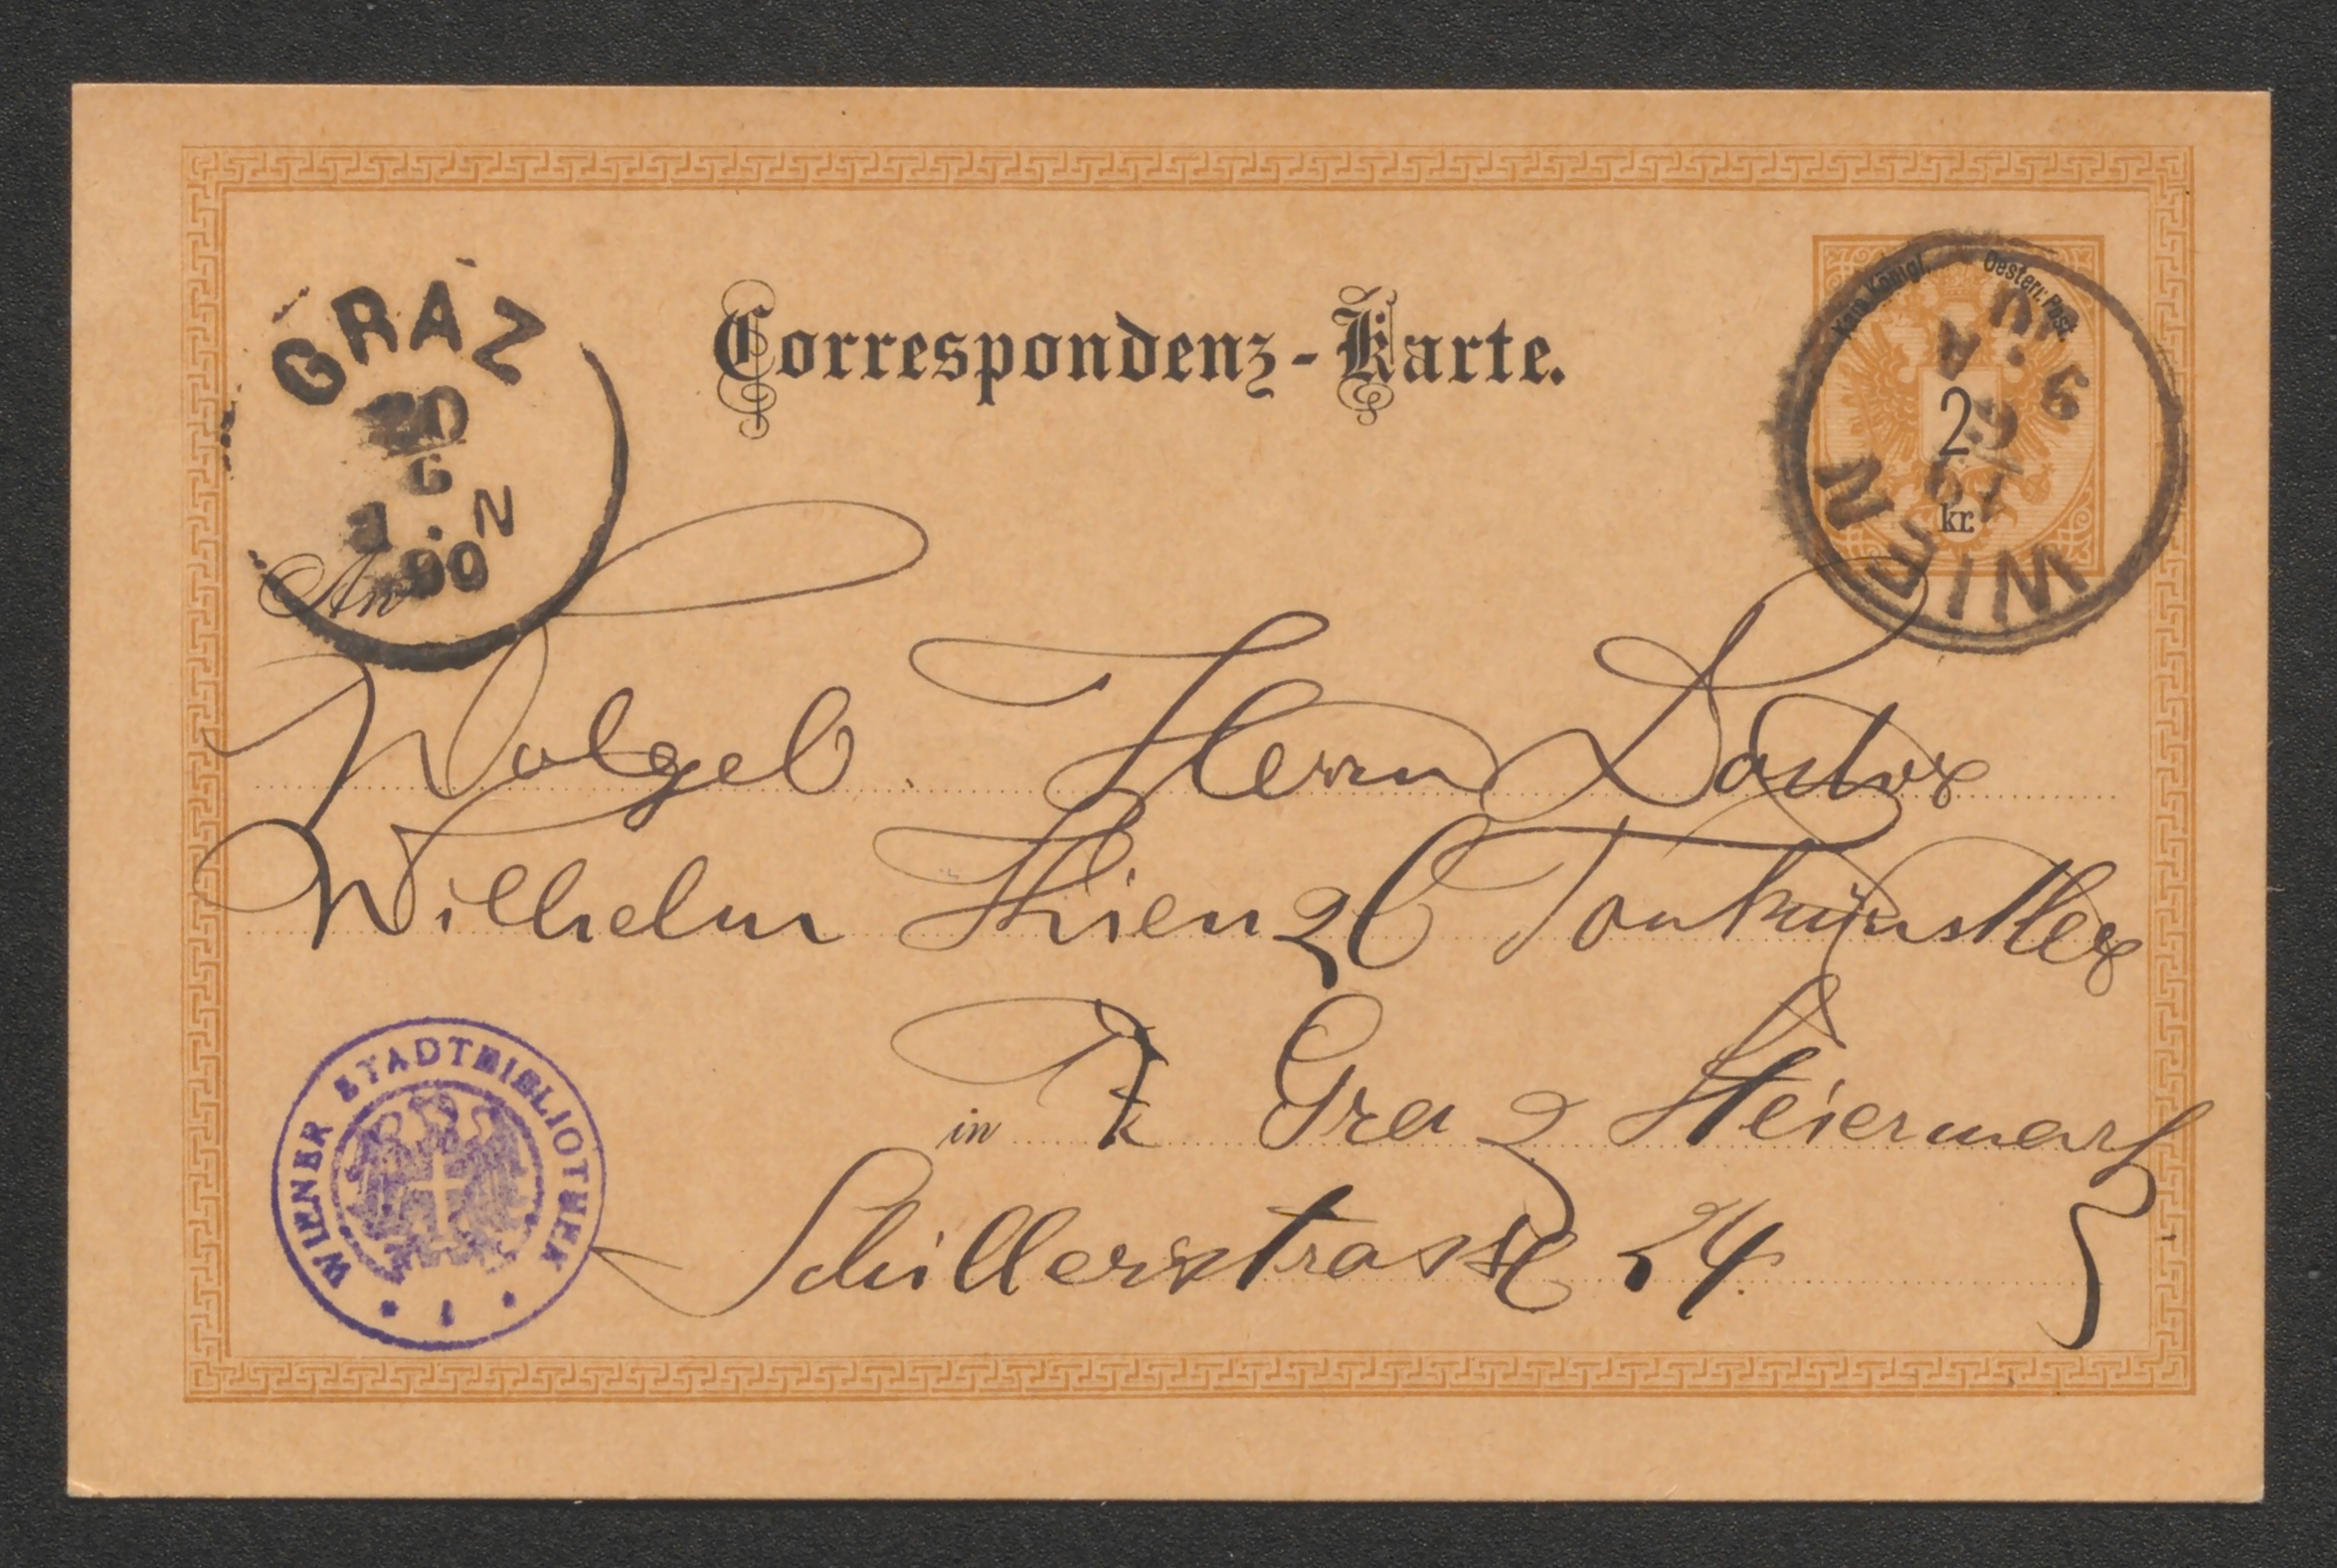 Correspondenz-Karte.
Kais. Königl. Oesterr. Post
2
kr.
WIEN
19
6
9 . A
90
GRAZ
20
6
1 . N
90
An
Wolgeb. Herrn Doctor
Wilhelm Kienzl Tonkünstler
in Graz Steiermark
Schillerstrasse 24
WIENER STADTBIBLIOTHEK
* 1 *